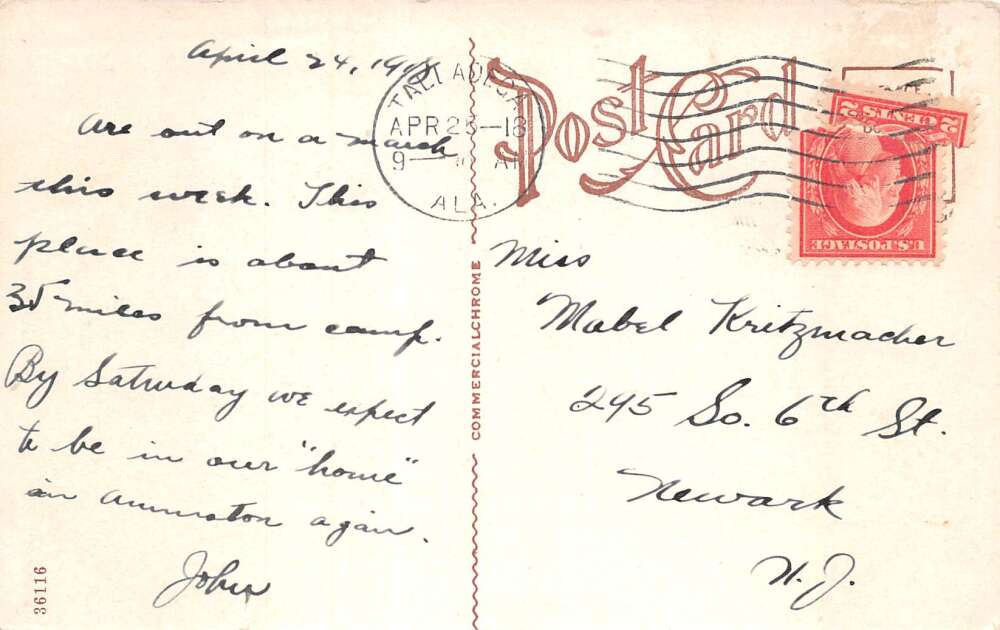 April 24, 1918
Are out on a march
this week. This
place is about
35 miles from camp.
By Satruday we expect
to be in our "home"
in Anniston again.
John
36116
COMMERCIALCHROME
Post Card
TALLADEGA
APR 25-18
9- AM
ALA.
2 CENTS 2
U.S. POSTAGE
Miss
Mabel Kritzmacher
295 So. 6th St.
Newark
N. J.